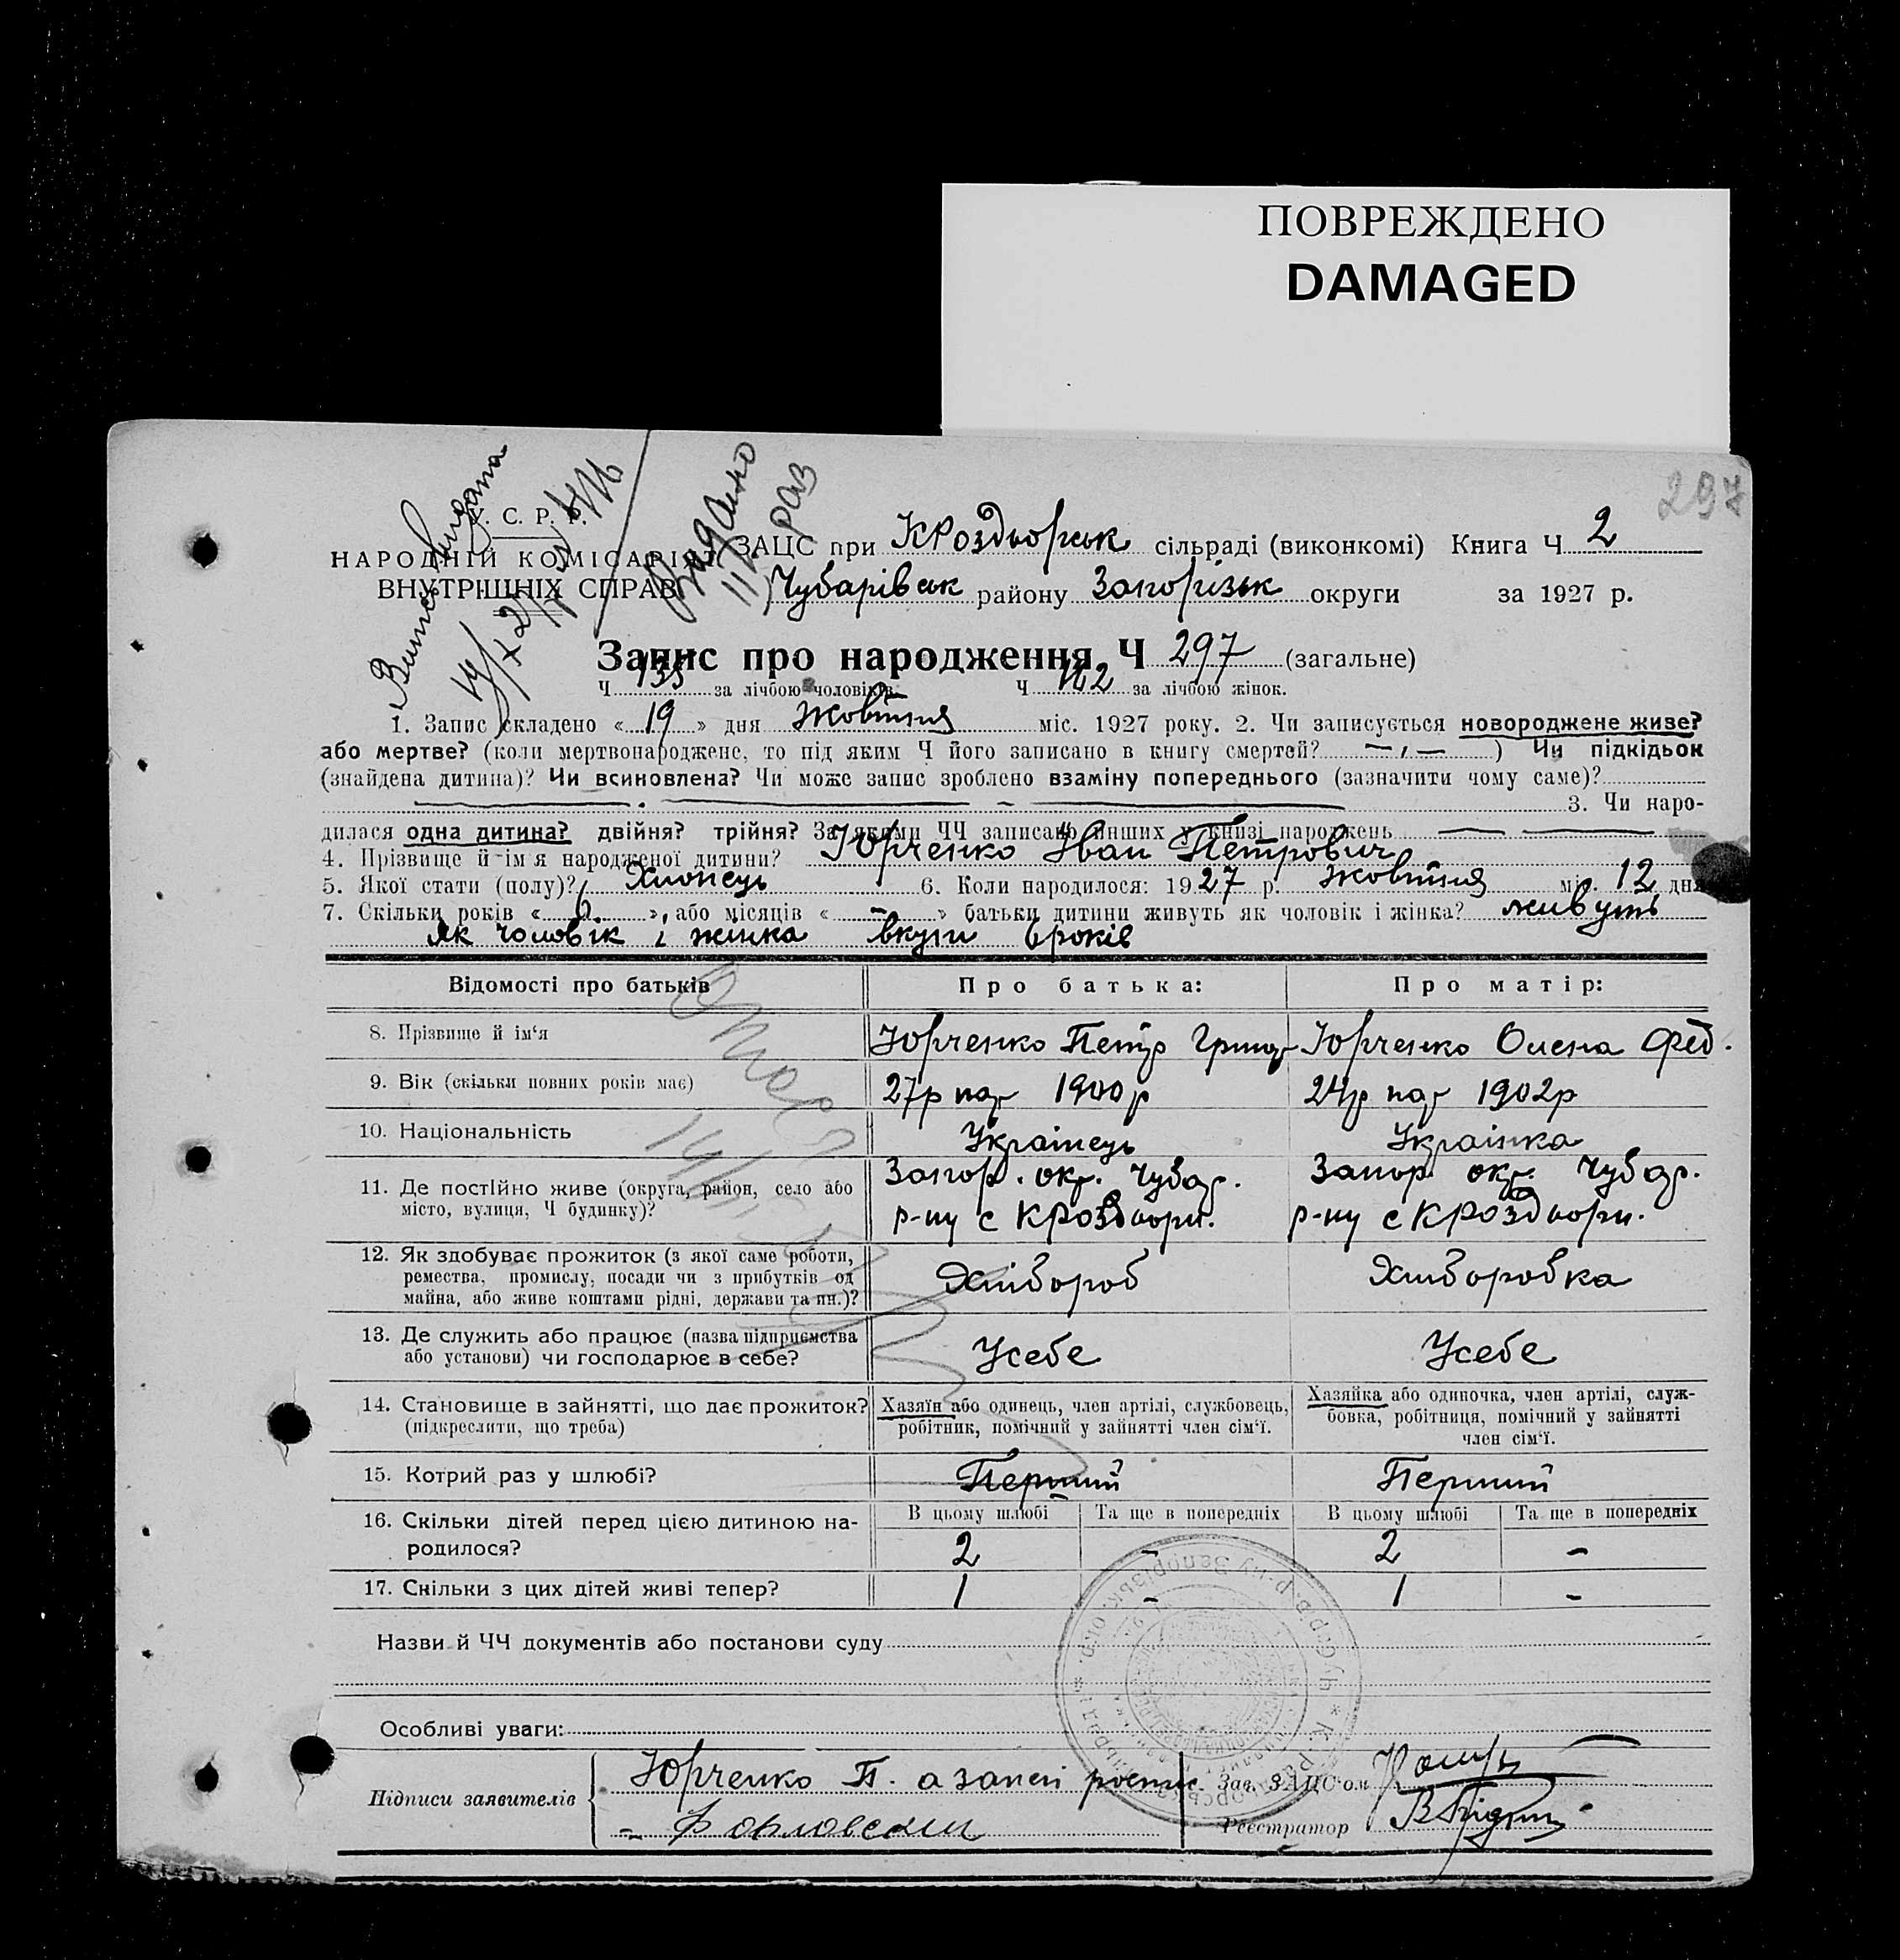 ПОВРЕЖДЕНО
DAMAGED
297
Випис видана
Видано
II раз
У. С. Р. Р.
НАРОДНІЙ КОМІСАРІЯТ
ВНУТРІШНІХ СПРАВ
ЗАЦС при КРоздорськ сільраді (виконкомі) Книга Ч 2
Чубарівськ району Запорізьк округи за 1927 р.
Запис про народження Ч 297 (загальне)
Ч 155 за лічбою чоловіків. Ч 142 за лічбою жінок.
1. Запис складено « 19 » дня Жовтня міс. 1927 року. 2. Чи записується новороджене живе?
або мертве? (коли мертвонароджене, то під яким Ч його записано в книгу смертей? ) Чи підкідьок
(знайдена дитина)? Чи всиновлена? Чи може запис зроблено взаміну попереднього (зазначити чому саме)?
3. Чи наро-
дилася одна дитина? двійня? трійня? За якими ЧЧ записано инших у книзі народжень
4. Прізвище й ім'я народженої дитини? Юрченко Іван Петрович
5. Якої стати (полу)? Хлопець 6. Коли народилося: 1927 р. Жовтня міс. 12 дня
7. Скільки років « 6 », або місяців « - » батьки дитини живуть як чоловік і жінка? живуть
як чоловік і жінка вкупі 6 років
Відомості про батьків Про батька: Про матір:
8. Прізвище й ім'я Юрченко Петро Григ Юрченко Олена Фед.
9. Вік (скільки повних років має) 27р нар 1900р 24р нар 1902р
10. Національність Українець Українка
11. Де постійно живе (округа, район, село або місто, вулиця, Ч будинку)?
Запор. окр. Чубар. Запор. окр. Чубар.
р-ну с КРоздори. р-ну с КРоздори.
12. Як здобуває прожиток (з якої саме роботи,
ремества, промислу, посади чи з прибутків од
майна, або живе коштами рідні, держави та ин.)?
Хлібороб Хліборобка
13. Де служить або працює (назва підприємства
або установи) чи господарює в себе?
Усебе Усебе
14. Становище в зайнятті, що дає прожиток?
(підкреслити, що треба)
Хазяїн або одинець, член артілі, службовець,
робітник, помічний у зайнятті член сім'ї.
Хазяйка або одиночка, член артілі, служ-
бовка, робітниця, помічний у зайнятті
член сім'ї.
15. Котрий раз у шлюбі? Перший Перший
16. Скільки дітей перед цією дитиною на-
родилося?
В цьому шлюбі Та ще в попередніх В цьому шлюбі Та ще в попередніх
2 - 2 -
17. Скільки з цих дітей живі тепер? 1 - 1 -
Назви й ЧЧ документів або постанови суду
Особливі уваги:
Підписи заявителів
Юрченко П. а запені роспис.
Зав. ЗАЦС'ом
Реєстратор